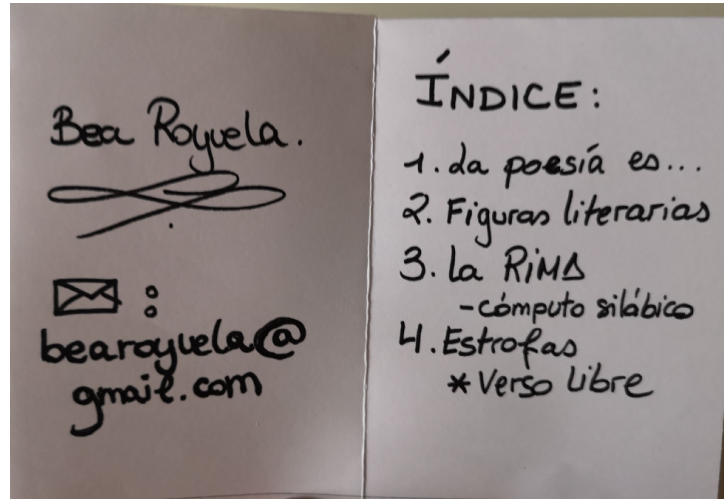 Bea Royuela.
✉:
bearoyuela@
gmail.com
ÍNDICE:
1. La poesía es...
2. Figuras literarias
3. La RiMA
-cómputo silábico
4. Estrofas
* Verso Libre